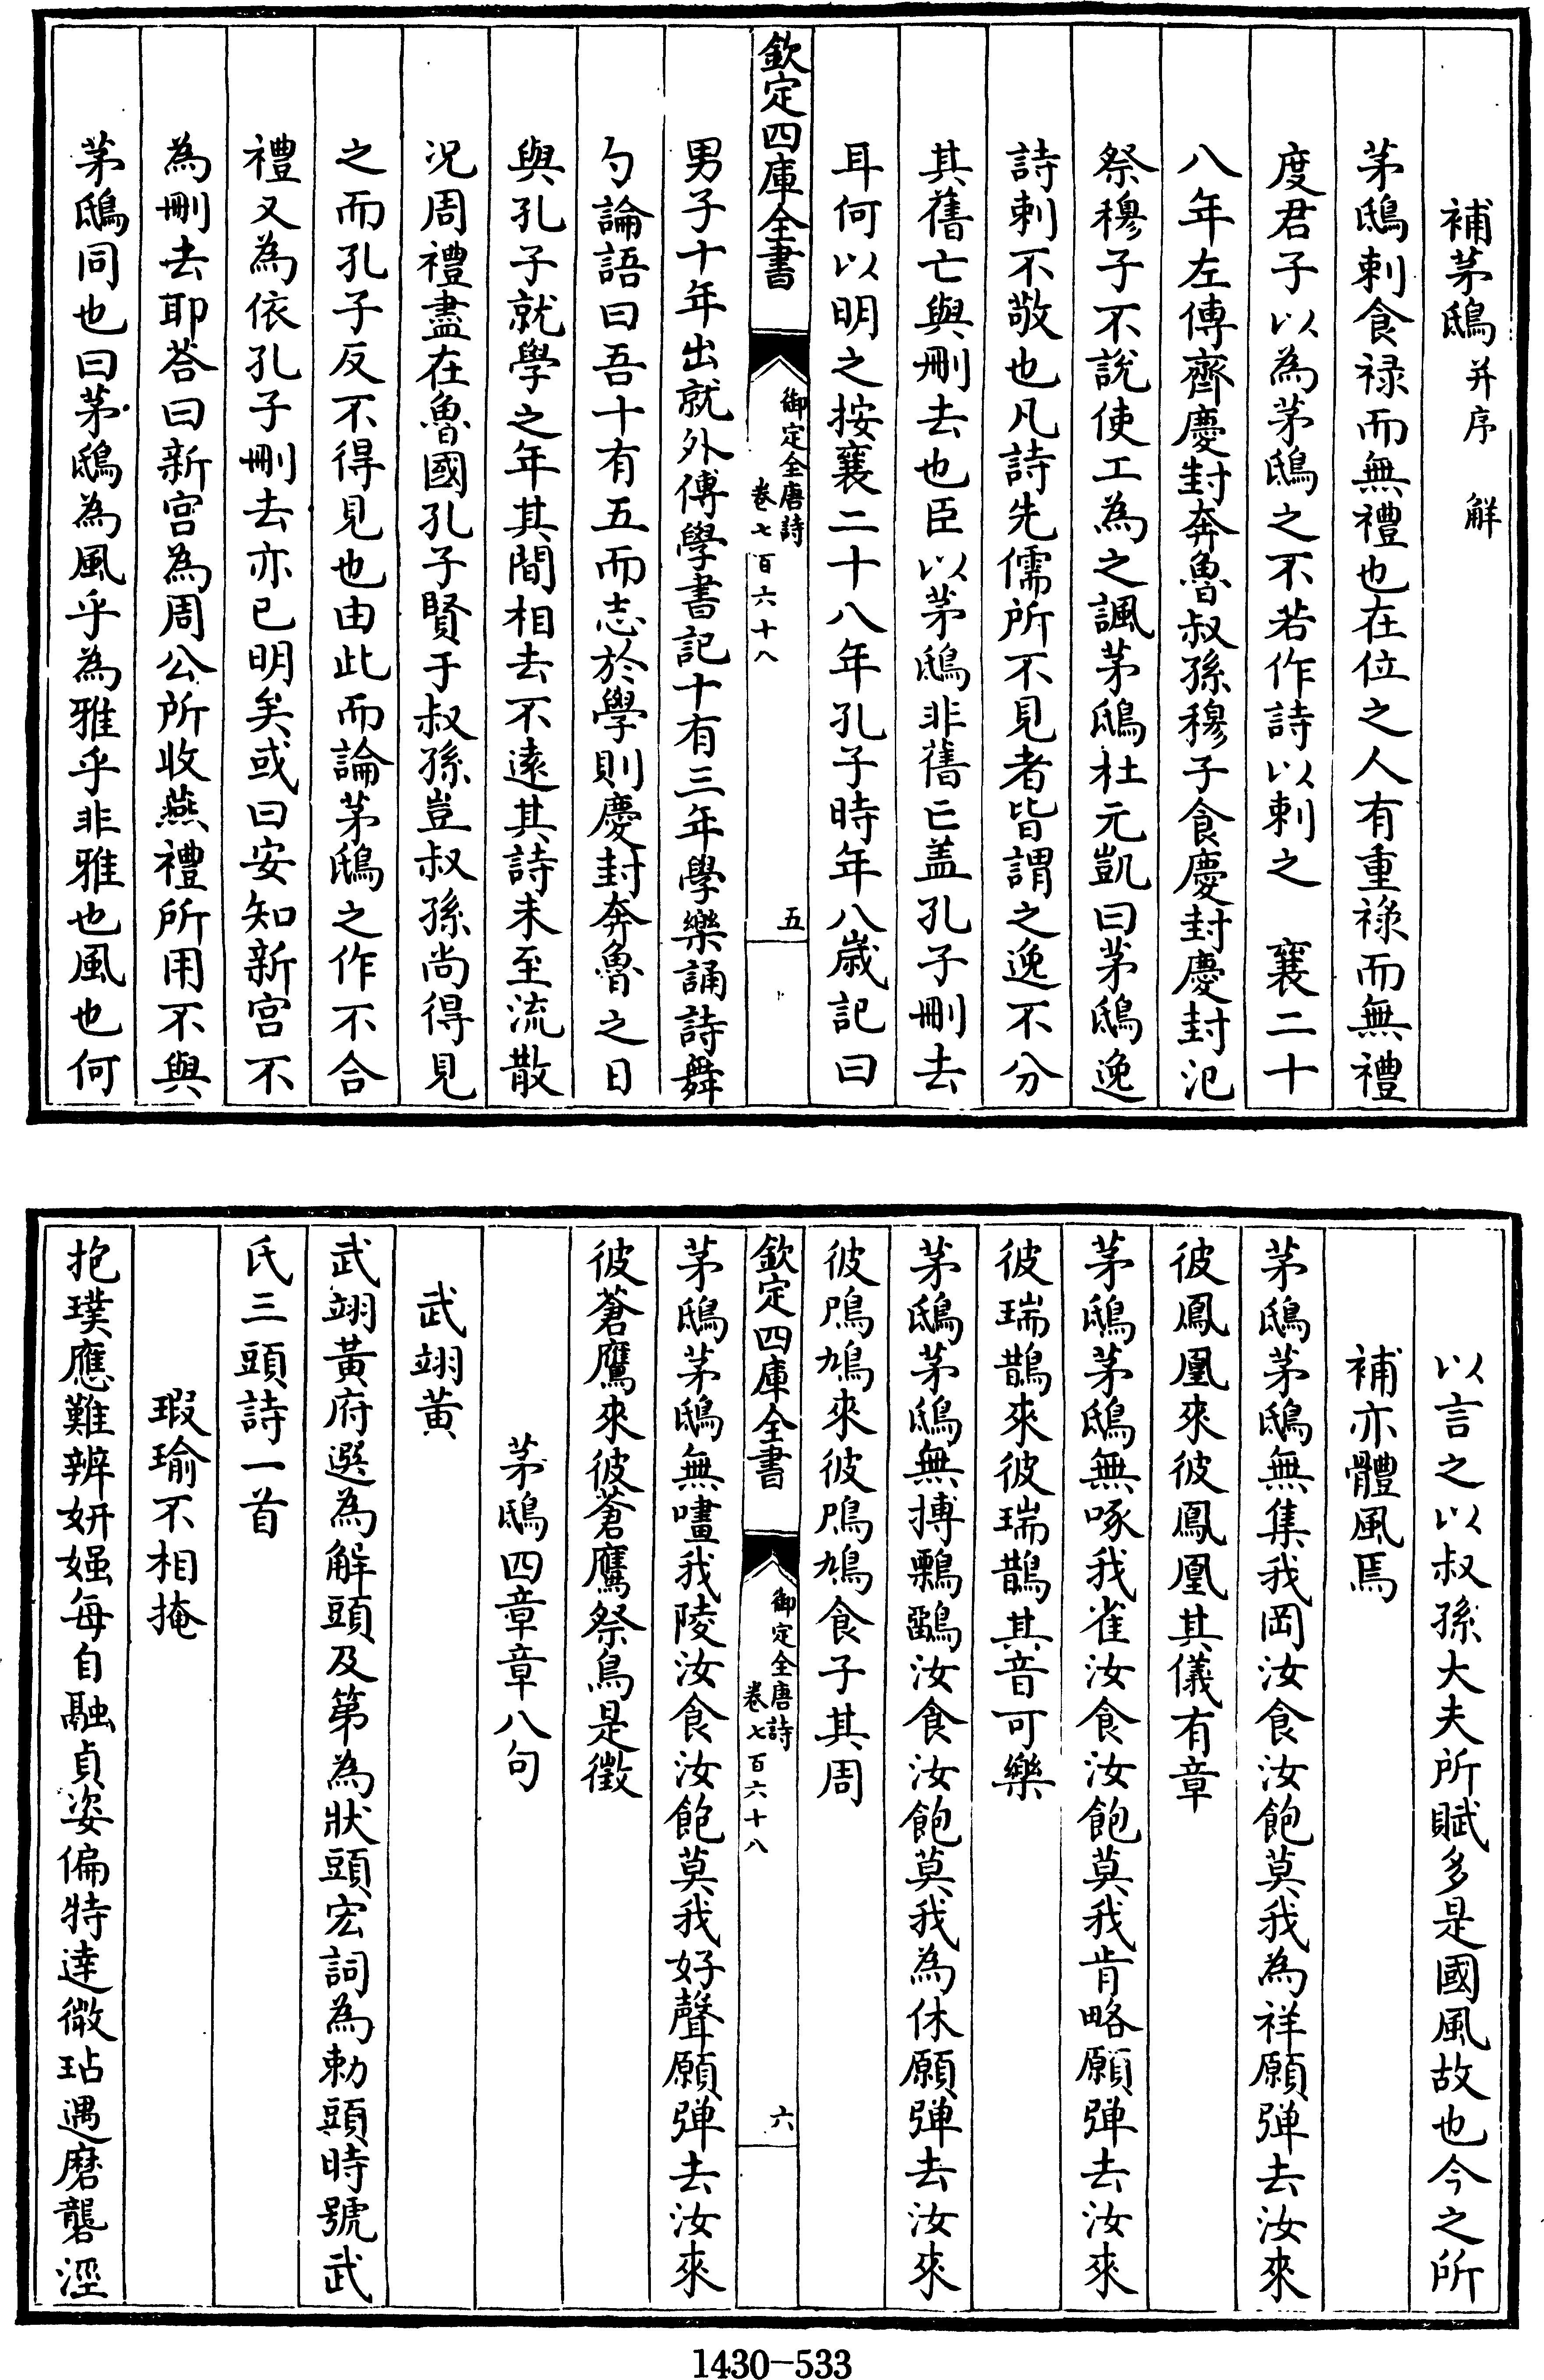 補茅鴟并序 解
茅鴟刺食禄而無禮也在位之人有重祿而無禮
度君子以為茅鴟之不若作詩以刺之 襄二十
八年左傳齊慶封奔魯叔孫穆子食慶封慶封汜
祭穆子不說使工為之諷茅鴟杜元凱曰茅鴟逸
詩刺不敬也凡詩先儒所不見者皆謂之逸不分
其舊亡與刪去也臣以茅鴟非舊亡盖孔子刪去
耳何以明之按襄二十八年孔子時年八歲記曰
欽定四庫全書 御定全唐詩 卷七百六十八 五
男子十年出就外傳學書記十有三年學樂誦詩舞
勺論語曰吾十有五而志於學則慶封奔魯之日
與孔子就學之年其間相去不遠其詩未至流散
况周禮盡在魯國孔子賢于叔孫豈叔孫尚得見
之而孔子反不得見也由此而論茅鴟之作不合
禮又為依孔子刪去亦已明矣或曰安知新宮不
為刪去耶荅曰新宮為周公所收燕禮所用不與
茅鴟同也曰茅鴟為風乎為雅乎非雅也風也何
以言之以叔孫大夫所賦多是國風故也今之所
補亦體風焉
茅鴟茅鴟無集我岡汝食汝飽莫我為祥願弹去汝來
彼鳳凰來彼鳳凰其儀有章
茅鴟茅鴟無啄我雀汝食汝飽莫我肯略願弹去汝來
彼瑞鵲來彼瑞鵲其音可樂
茅鴟茅鴟無搏鷅鶹汝食汝飽莫我為休願弹去汝來
彼鳲鳩來彼鳲鳩食子其周
欽定四庫全書 御定全唐詩 卷七百六十八 六
茅鴟茅鴟無嚍我陵汝食汝飽莫我好聲願弹去汝來
彼蒼鷹來彼蒼鷹祭鳥是徵
茅鴟四章章八句
武翊黃
武翊黃府選為解頭及第為狀頭宏詞為勅頭時號武
氏三頭詩一首
瑕瑜不相掩
抱璞應難辨妍媸每自融貞姿偏特達微玷遇磨礱涇
1430-533